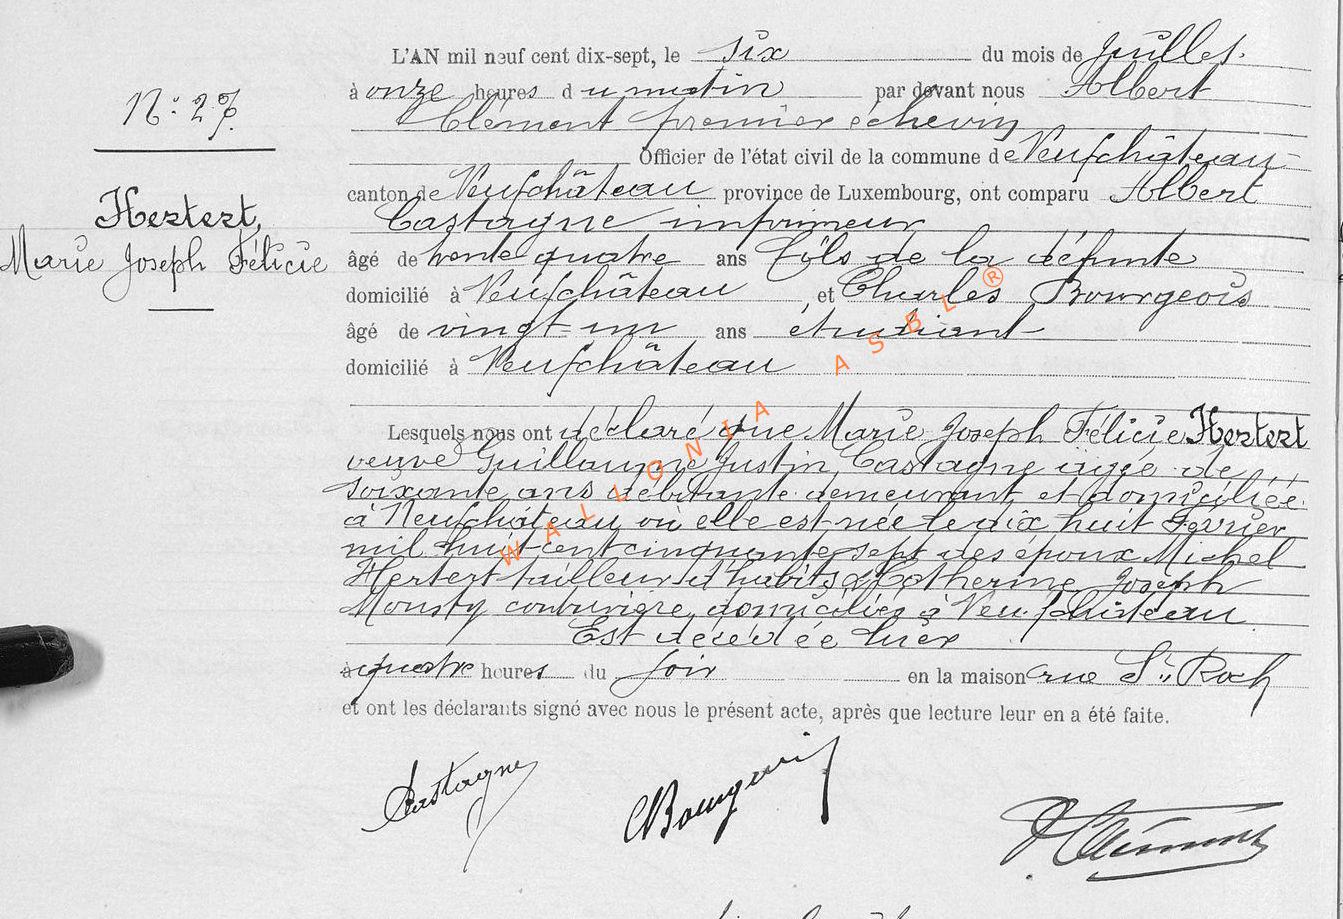 L'AN mil neuf cent dix-sept, le six du mois de Juillet.
à onze heures du matin par devant nous Albert
Clément premier echevin
Officier de l'état civil de la commune de Neufchâteau
canton de Neufchâteau province de Luxembourg, ont comparu Albert
Castagne imprimeur
âgé de trente quatre ans fils de la défunte
domicilié à Neufchâteau, et Charles Bourgeois
âgé de vingt-un ans étudiant
domicilié à Neufchâteau
Lesquels nous ont déclaré que Marie Joseph Félicie Hertert
veuve Guillaume Justin Castagne agée de
soixante ans débitante demeurant et domiciliée
à Neufchâteau où elle est née le dix huit Fevrier
mil huit cent cinquante sept des époux Michel
Hertert tailleur d'habits & Catherine Joseph
Mousty couturière domiciliés à Neufchâteau
Est décédée hier
à quatre heures du soir en la maison rue St Roch
et ont les déclarants signé avec nous le présent acte, après que lecture leur en a été faite.
N° 27.
Hertert,
Marie Joseph Félicie
Castagne
CBourgeois
A Clément
WALLONIA ASBL ®